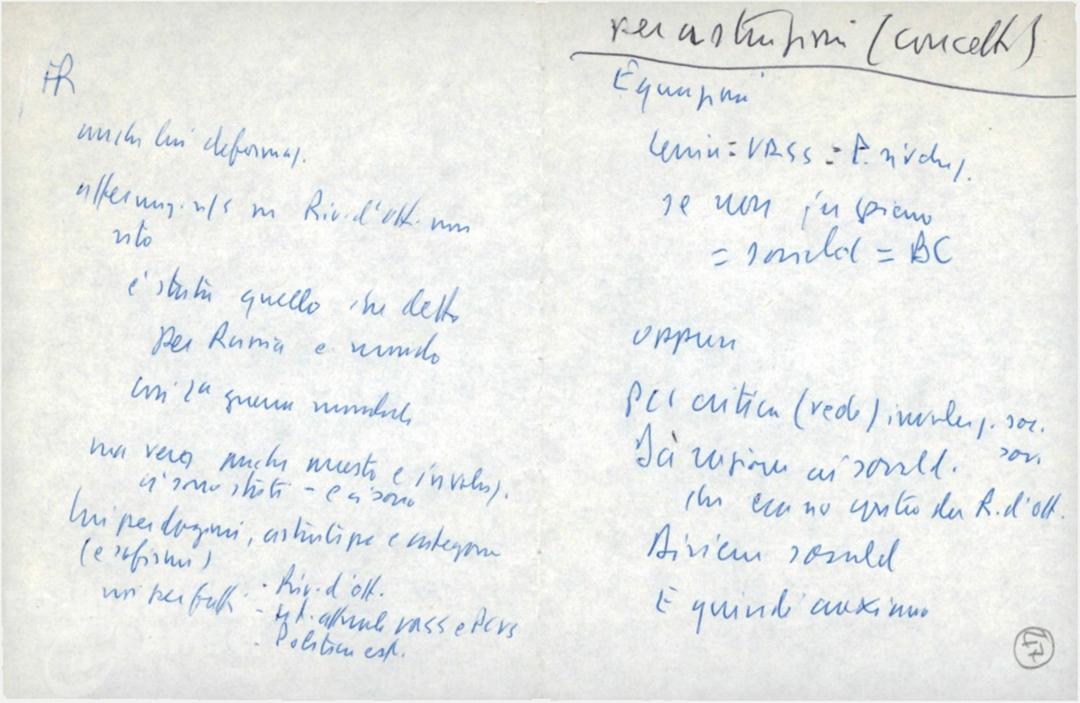 anche lui deformaz.
affermaz. n/s su Riv. d'Ott. non
sito
è stata quello che detto
per Russia e mondo
così 2ª guerra mondiale
ma vero anche questo e involuz.
ci sono stati - e ci sono
lui per dogmi, e categorie
(e sofismi)
noi per fatti · Riv. d'ott.
- att. attuale URSS e PCUS
- Politica est.
per astrazioni (concetti)
Equazioni
Lenin = URSS = P. rivoluz.
se non in pieno
= sociald = BC
oppure
Per critica (vede) involuz. soc.
sov.
Dà ragione ai socald.
che erano contro la R. d'ott.
Diviene socald
E quindi
77